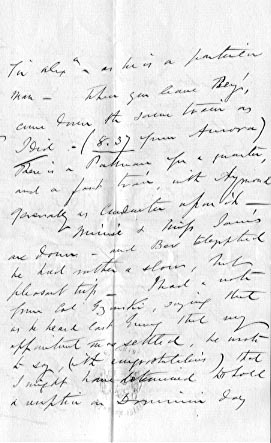 Sir Alexr - as he is a particular
man - When you leave Bey,
come down the same train as
I did - (8.37 from Aurora)
There is a Pullman for a quarter,
and a fast train, with Aymond
generally as Conductor upon it -
Minnie & Miss James
are down - and Ber telegraphed
he had rather a slow, but
pleasant trip - I had a note
from Col Gzowski, saying that
as he heard last evening that my
appointment was settled, he wrote
to say, (with congratulations) that
I might have determined to hold
a reception on Dominion Day